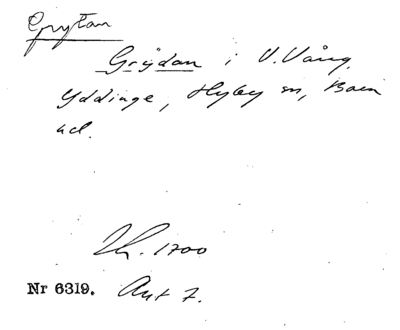 Grytan
Grÿdan i V. Vång,
Yddinge, Hyby sn, Bara
hd.
Lk. 1700
Nr 6319. Akt 7.